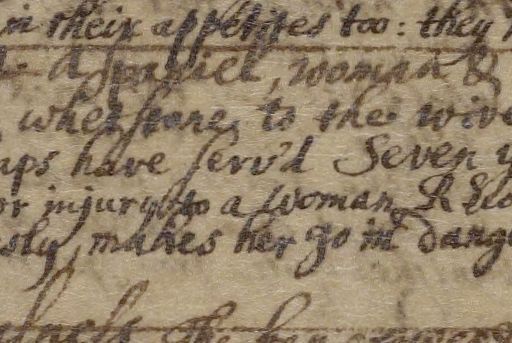 in their appetites too: they
A Spaniel, woman &
whetstone to the wive
aps have serv'd Seven y
or injury to a woman R
sly makes her go in dang